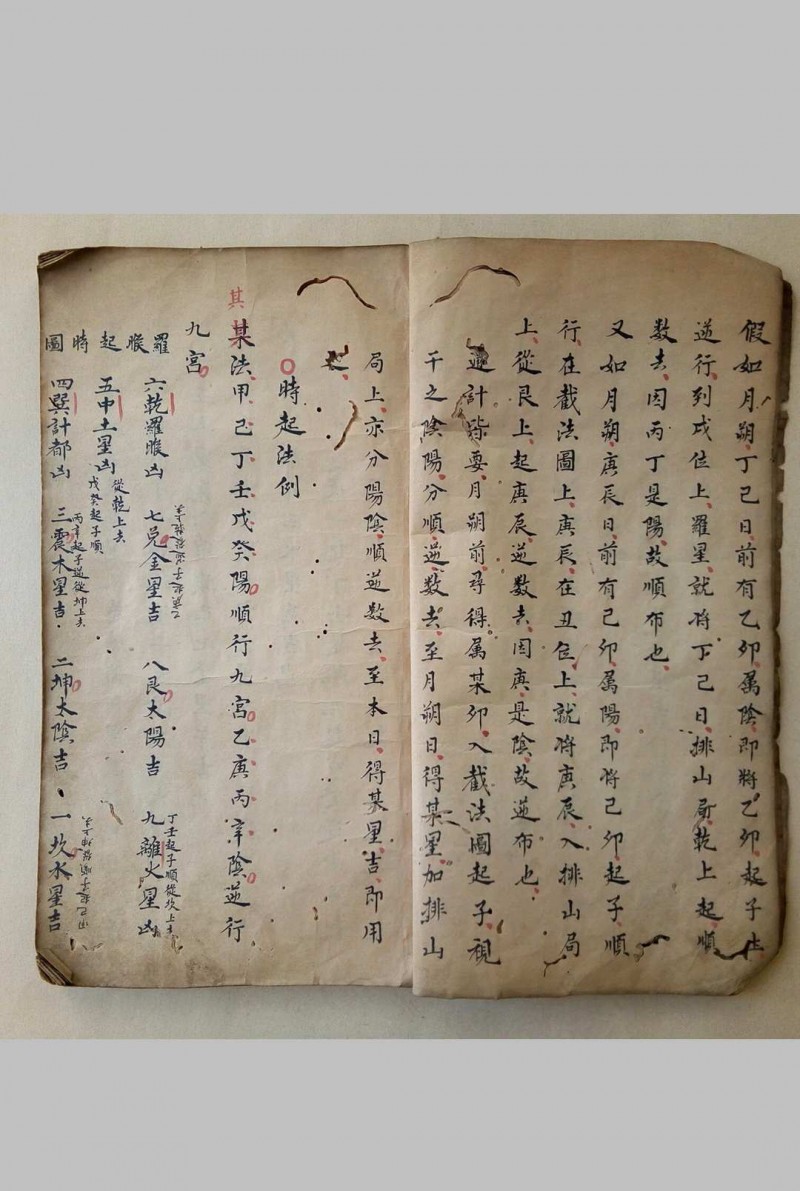 假如月朔丁巳日前有乙卯属陰即將乙卯起子位
逆行列戌位上羅星就将丁己日排山局乾上起順
数去因丙丁是陽故順布也
又如月朔庚辰日前有己卯属陽即将己卯起子順
行在截法圖上庚辰在丑位上就将庚辰入排山局
上從艮上起庚辰逆数去因庚是陰故逆布也
計皆要月朔前尋得属某卯入截法圖起子視
干之陰陽分順逆数去至月朔日得某星加排山
局上亦分陽陰順逆数去至本日得某星吉即用
之
時起法例
其
某法甲己丁壬戊癸陽順行九宮乙庚丙辛陰逆行
九宮
六乾羅睺凶 七兑金星吉 八艮太陽吉 九離火星凶
丁壬起子順從坎上去
五中土星凶
從乾上去
戊癸起子順
羅睺起時圖
四巽計都凶 三震木星吉 二坤太陰吉 一坎水星吉
丙辛起子逆從坤上去